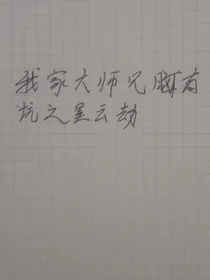 我家大师兄脑有
坑之星云劫